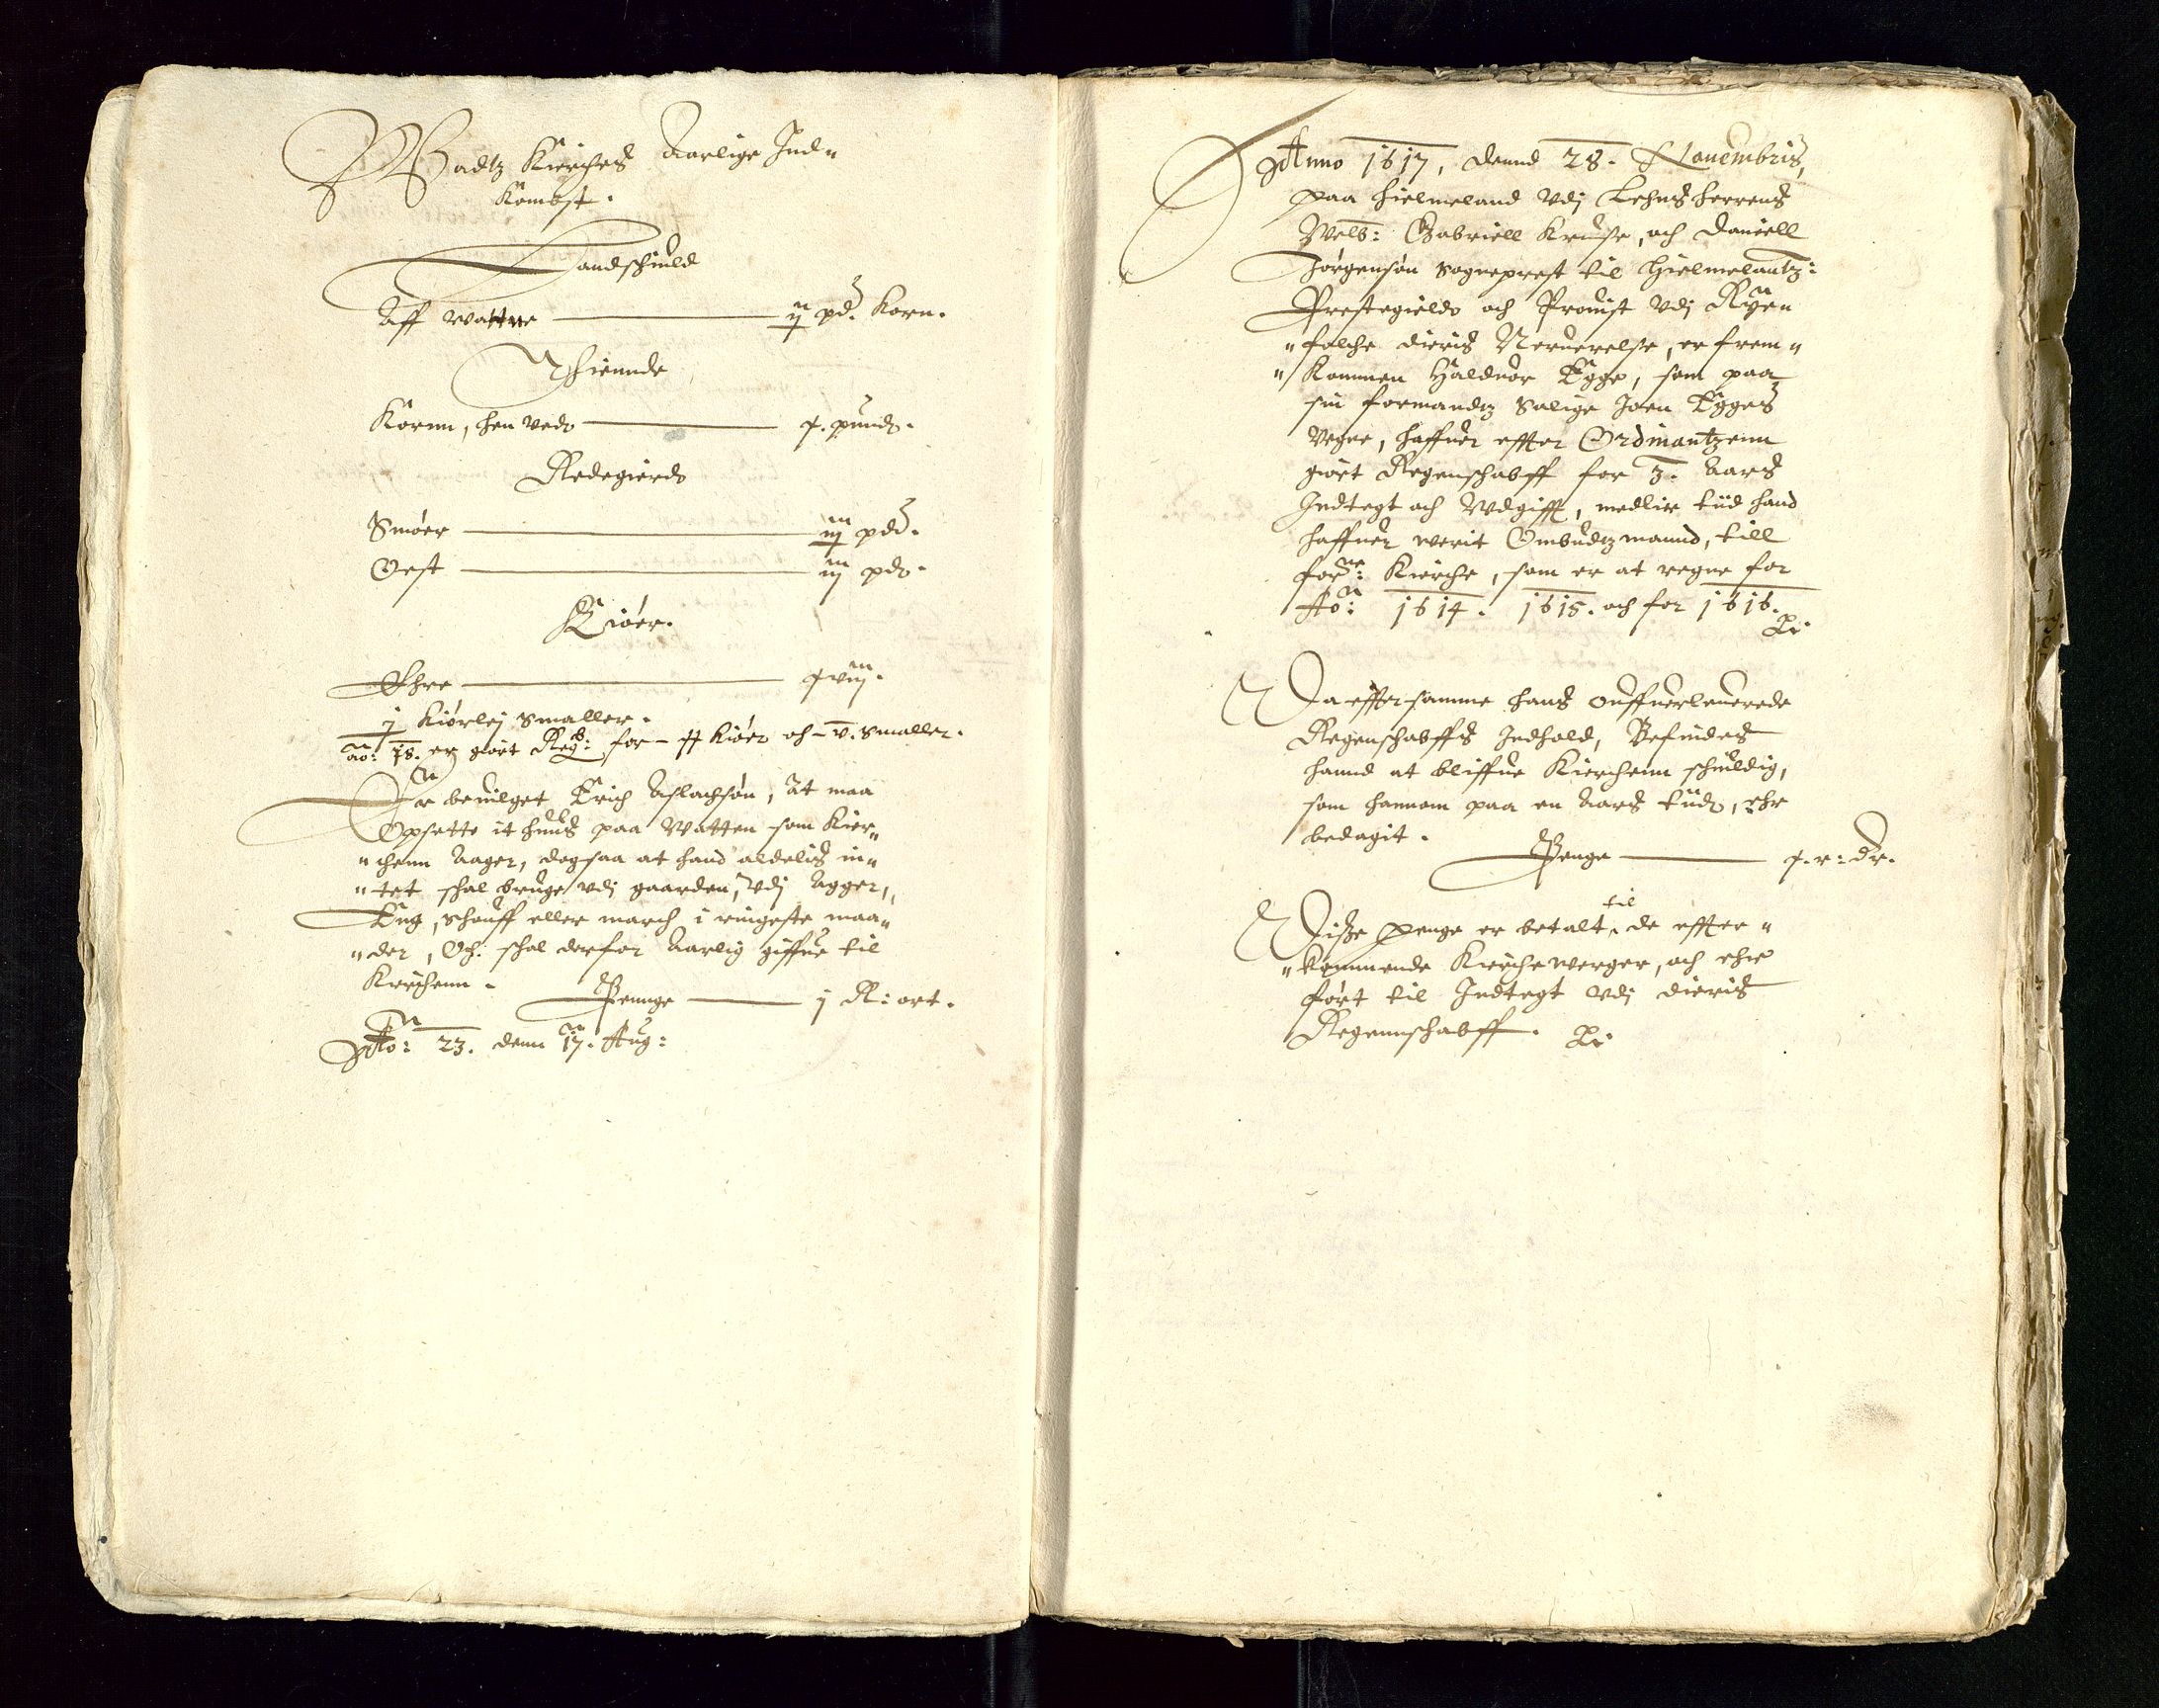 Wadtz Kierches Aarlige Ind-
Kombst.
Landschuld
Aff Wattne ij pd. Korn.
Thiennde
Kornn, hen ved 4. pund.
Redegierd
Smöer iij pd.
Oest iij pd.
Kiöer.
Ehre
j Kiörlej Smaller.
Ao: 18. er giort Reg: for Kiöer och v. Smaller.
Er beuilget Erich Aslachsøn, At maa
Opsette it huus paa Watten som Kier-
chenn Aager, dog saa at hand aldelis in-
tet schal bruge vdj gaarden, vdj Agger,
Eng, Schouff eller march i ringeste maa-
der, Och schal derfor Aarlig giffue til
Kirchenn.
Pennge j R: ort.
Ao: 23. denn 17. Aug:
Anno 1617, dennd 28. Nouembris,
paa Hielmeland vdj Lehns herrens
Welb: Gabriell Kruse, och Daniell
Jörgensøn Sogneprest til Hielmelantz:
Prestegield och Prouist vdj Rye-
folche dieris Neruerelse, er frem-
Kommen Halduor Egge, som paa
sin formandtz Salige Joen Egges
Vegne, haffuer effter Ordinantzenn
giort Regenschabff for 3. Aars
Indtegt och Wdgifft, medler tiid hand
haffuer werit Ombudtzmannd, till
forne: Kirche, som er at regne for
Ao: 1614. 1615. och for 1616.
Da effter samme hans Offuerleuerede
Regenschabffs Indhold, Befindes
hannd at bliffue Kierchenn schuldig,
som hannom paa en Aars tiid, ehr
bedagit.
Penge 4. r: dr.
Disse Penge er betalt til de effter-
kommende Kirchewerger, och ehr
fört til Indtegt vdj dieris
Regennschabff.